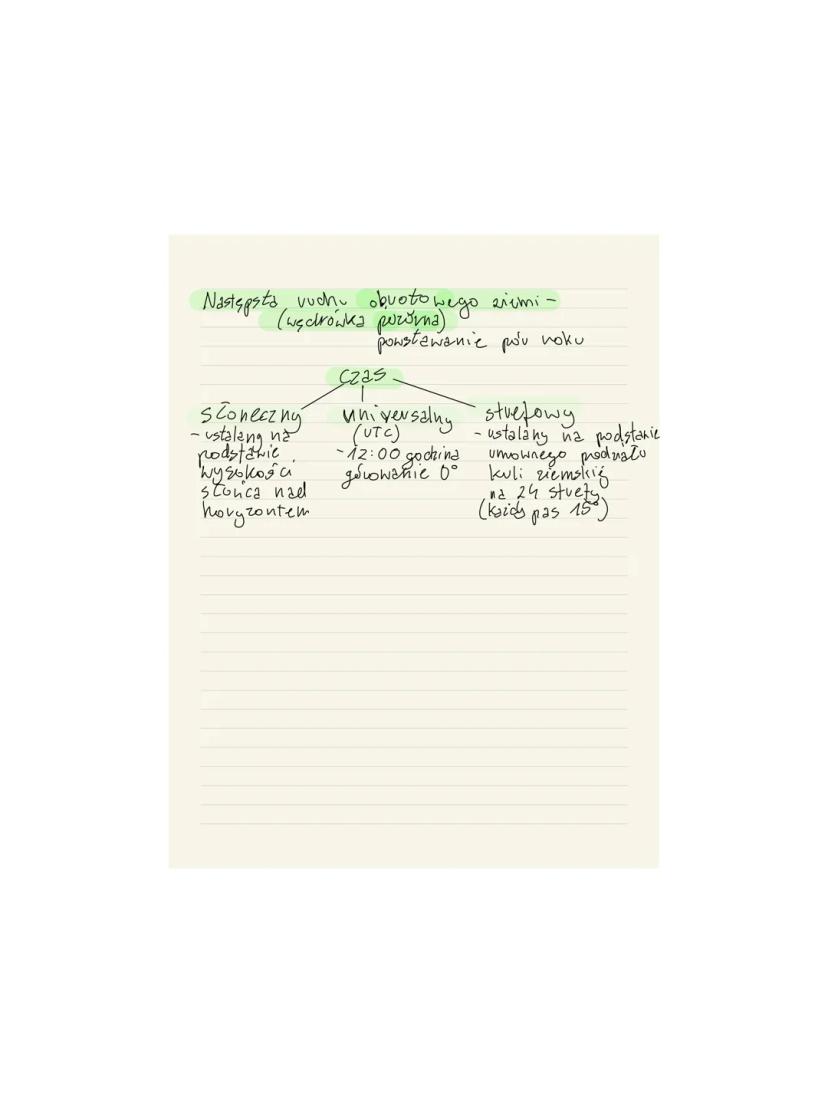 Następstą ruchu obrotowego ziemi -
(wędrówka pozorna)
powstawanie pór roku
czas
słoneczny
- ustalany na
podstawie
wysokości
słońca nad
horyzontem
uniwersalny
(UTC)
- 12:00 godzina
górowanie 0°
strefowy
- ustalany na podstawie
umownego podziału
kuli ziemskiej
na 24 strefy
(każdy pas 15°)